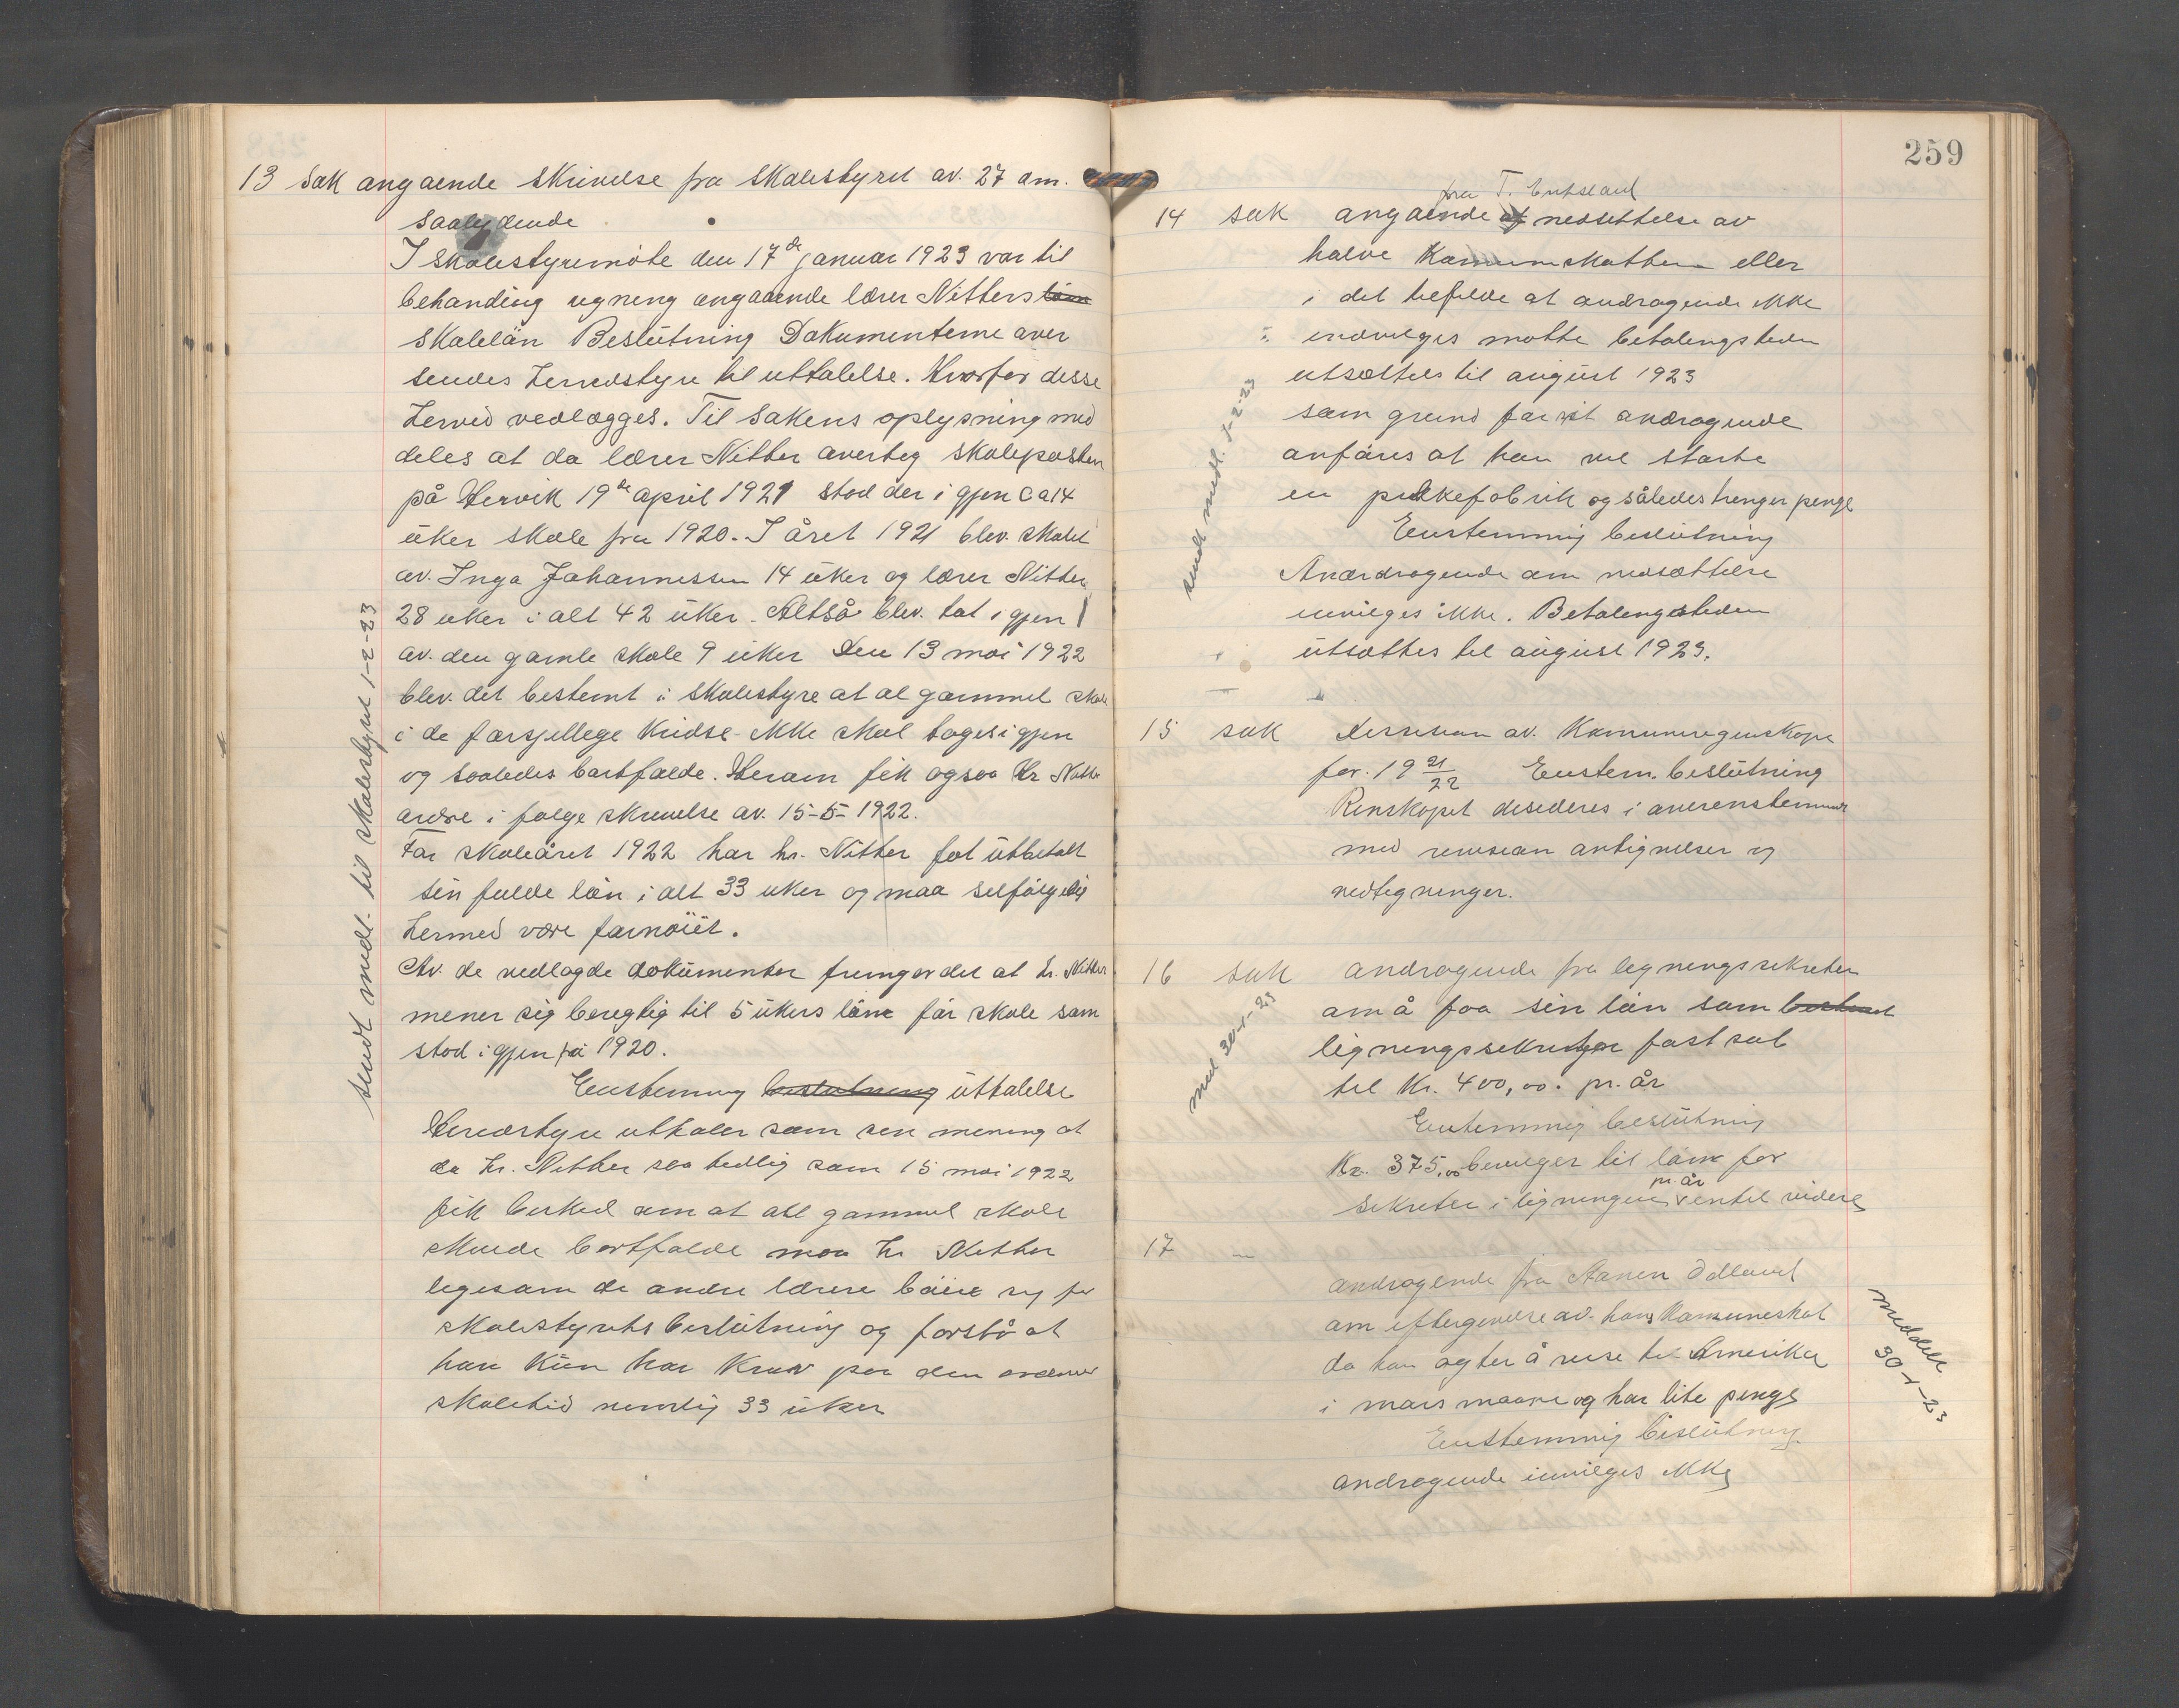 13 Sak angaende Skrivelse fra Skolestyret av. 27 am.
saalydende
I skolestyremöte den 17de januar 1923 var til
behanding regning angaaende lærer Nitters lönn
skolelön Beslutning Dokumenterne over
sendes Herredstyre til uttalelse. Hvorfor disse
Herved vedlægges. Til sakens oplysning med
deles at da lærer Nitter overtog skoleposten
på Hervik 19de april 1921 stod der i gjen Ca 14
uker skole fra 1920. I året 1921 blev. skolet
av. Inga Johannessen 14 uker og lærer Nitter
28 uker i alt 42 uker. Altså blev. tat i gjen
av. den gamle skole 9 uker Den 13 mai 1922
blev. det bestemt i skolestyre at al gammel skole
i de forsjellege kridse ikke skal tages igjen
og saaledes bortfalde. Herom fik ogsaa Hr Nitter
ordre i følge skrivelse av. 15-5-1922.
For skoleåret 1922 har hr. Nitter fot utbetalt
sin fulde lön i alt 33 uker og maa selfölgelig
Hermed være fornöiet.
Av. de vedlagde dokumenter fremgor det at hr. Nitter
mener sig beregtig til 5 ukers lönn för skole som
stod i gjen fra 1920.
Enstemmig beslutning uttalelse
Herredstyre uttaler som sen mening at
da Hr. Nitter saa tedlig som 15 mai 1922
fik besked om at all gammel skole
skulde bortfalde maa Hr Nitter
legesom de andre lærere böie sig for
skolestyrets beslutning og forstå at
han kun har krav por den ordener
skoletid nemlig 33 uker
sendt medl. til skolestyret 1-2-23
259
fra T.
14 sak angaende nedsettelse av
halve Komunskatten eller
i det tefelde at andragende ikke
indvelges motte betalingsteden
utsættes til august 1923
som grund for sit andragende
anföres at han vel starte
en fabrik og således trenger penge
Enstemmig beslutning
Anærdragende om nedsættelse
innvilges ikke. Betalingsteden
utsættes til august 1923.
sendt medl. 1-2-23
15 sak Desisian av. Komuneregenskape
for. 19 21/22 Enstem. beslutning
Renskapet desederes i overenstemmelse
med revisean antignelser og
nedtegnenger.
16 sak andragende fra legnengssekreter
am å faa sin lön som bestemt
ligningssekretær fastsat
til Kr. 400,00. pr. år
Enstemmig beslutning
Kr. 375,00 beveger til lönn for
pr. år
sekreter i ligningen v entel videre
med 30-1-23
17 — andragende fra Aanen Ödland
om eftergivelse av. hans Kommuneskat
da han agter å reise til Amerika
i mars maane og har lite penge
Enstemmig beslutning.
andragende innvilges ikke
meddelt
30-1-23